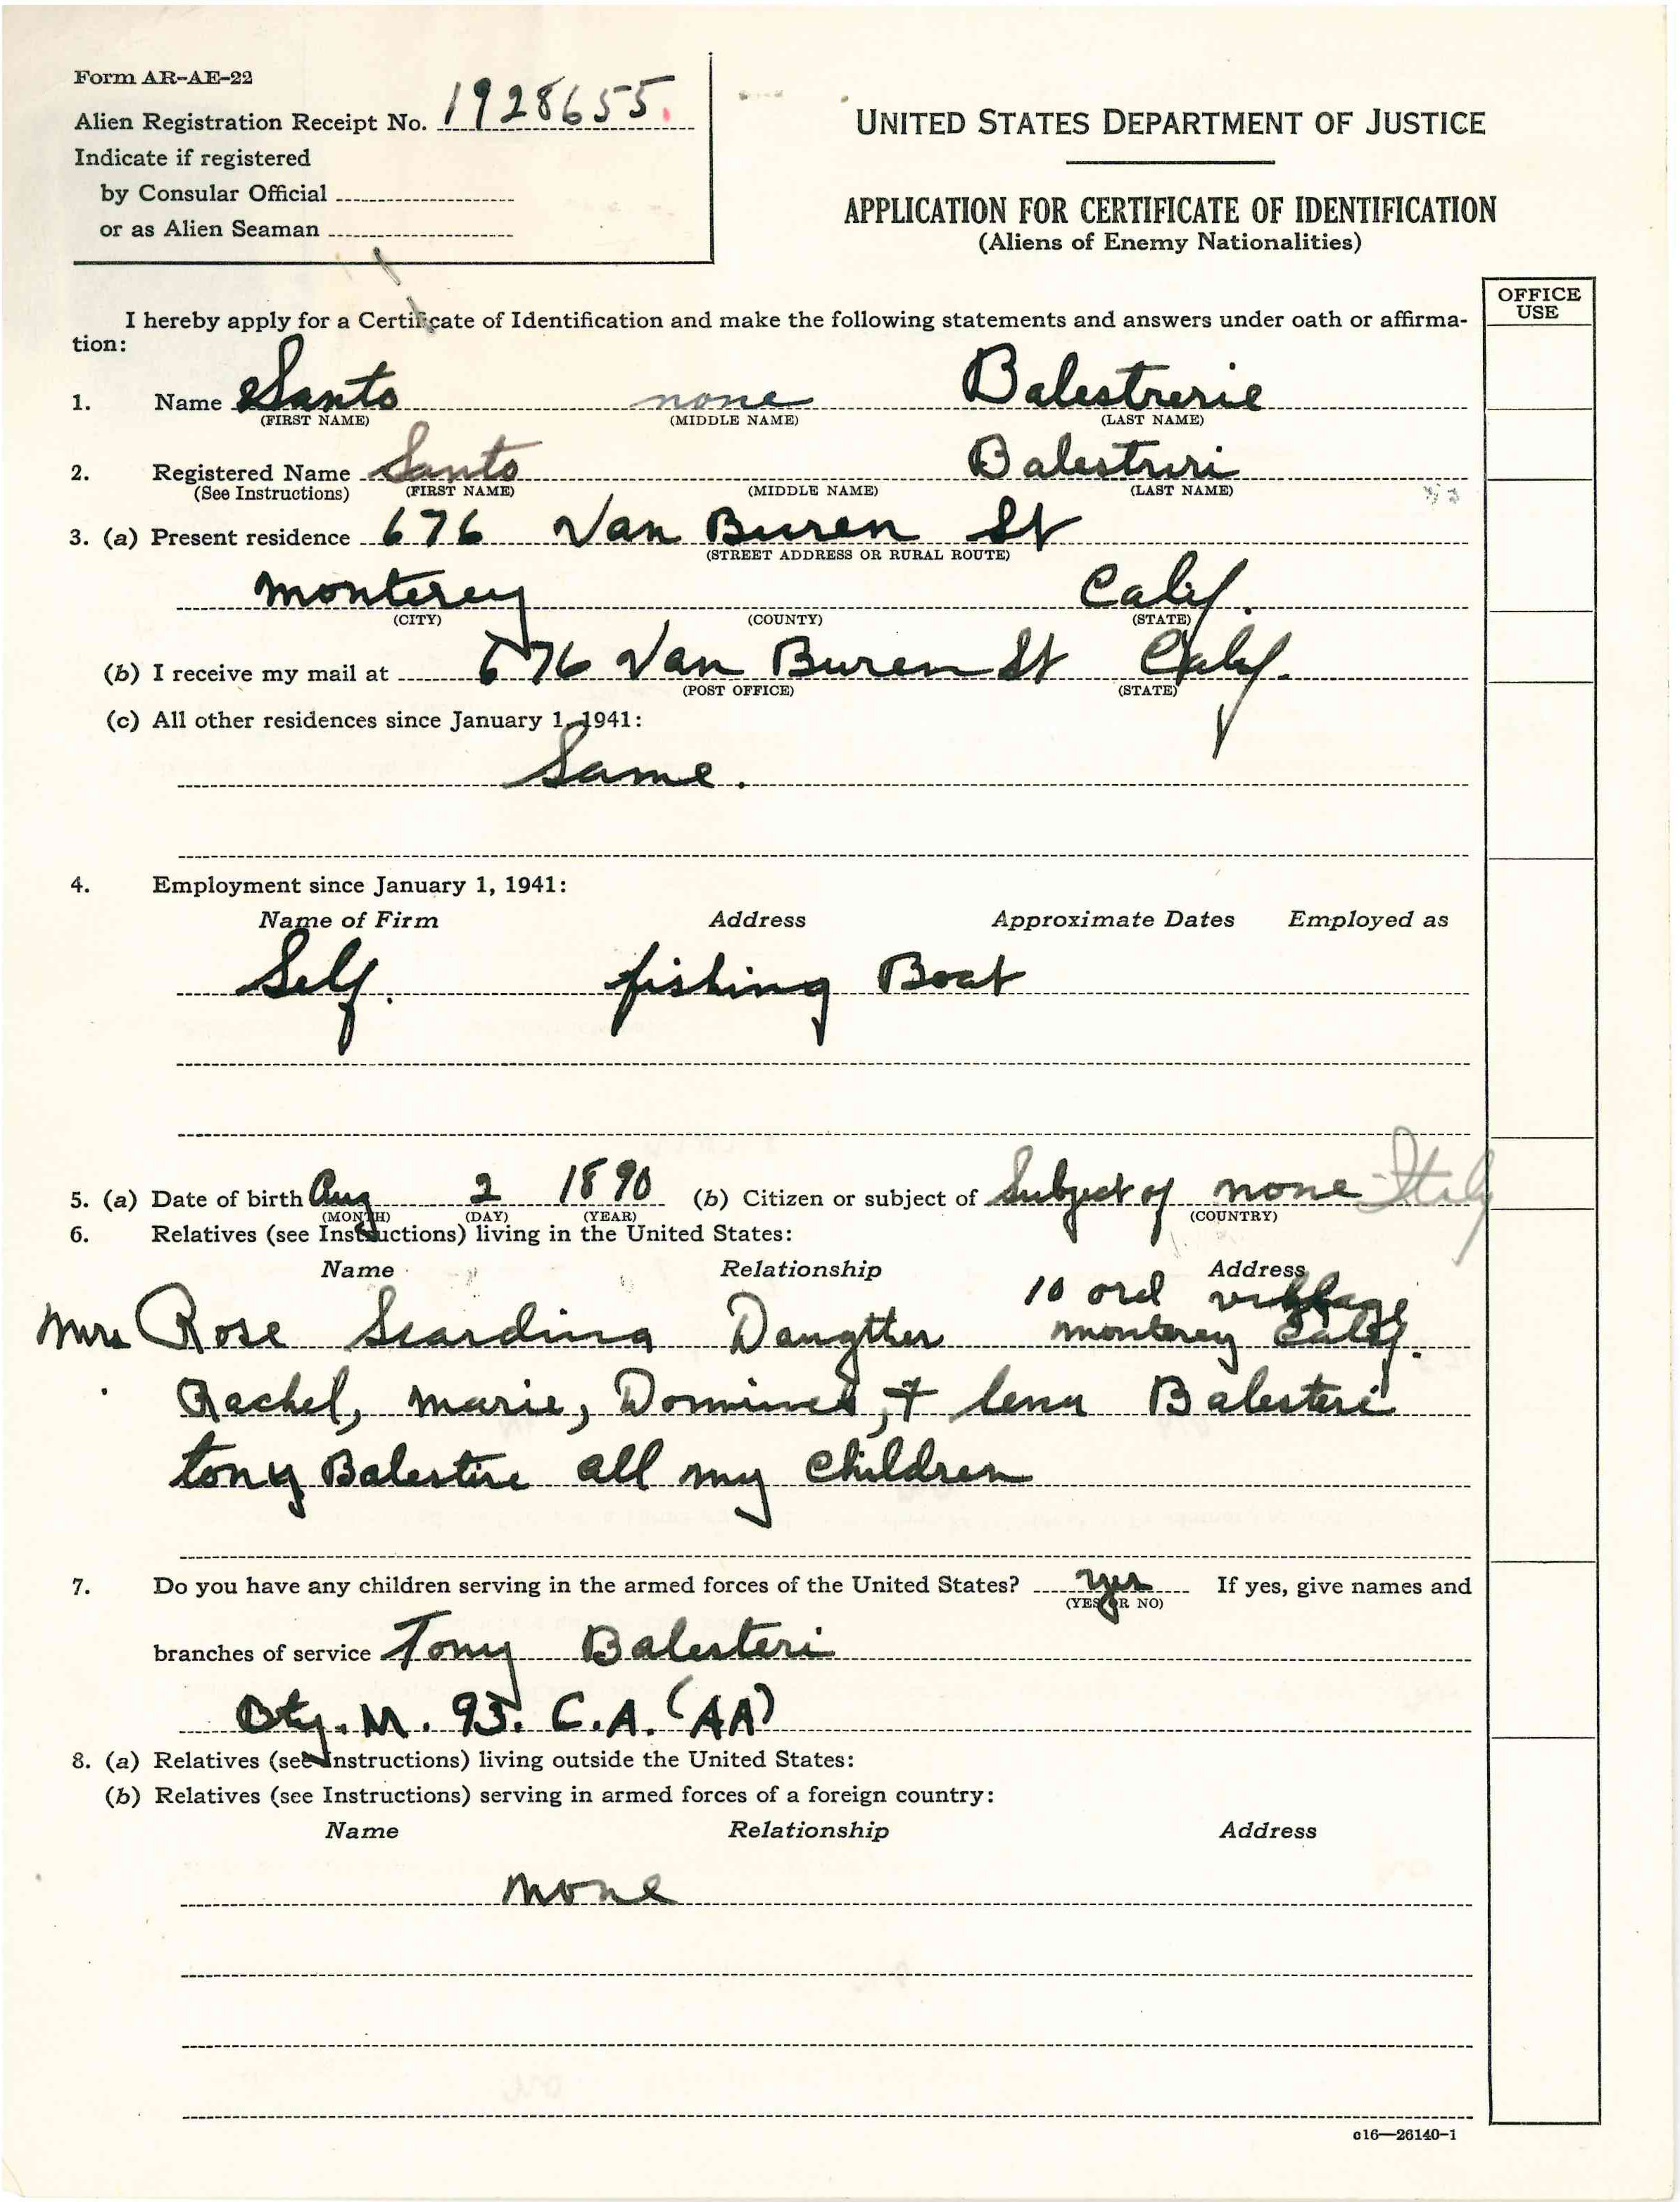 Form AR-AE-22
Alien Registration Receipt No. 1928655.
Indicate if registered
by Consular Official
or as Alien Seaman
UNITED STATES DEPARTMENT OF JUSTICE
APPLICATION FOR CERTIFICATE OF IDENTIFICATION
(Aliens of Enemy Nationalities)
OFFICE
USE
I hereby apply for a Certificate of Identification and make the following statements and answers under oath or affirma-
tion:
1. Name Santo none Balestrerie
(FIRST NAME) (MIDDLE NAME) (LAST NAME)
2. Registered Name Santo Balestreri
(See Instructions) (FIRST NAME) (MIDDLE NAME) (LAST NAME)
3. (a) Present residence 676 Van Buren St
(STREET ADDRESS OR RURAL ROUTE)
Monterey Calif.
(CITY) (COUNTY) (STATE)
(b) I receive my mail at 676 Van Buren St Calif.
(POST OFFICE) (STATE)
(c) All other residences since January 1, 1941:
Same.
4. Employment since January 1, 1941:
Name of Firm Address Approximate Dates Employed as
Self. fishing Boat
5. (a) Date of birth Aug 2 1890 (b) Citizen or subject of Subject of none - Italy
(MONTH) (DAY) (YEAR) (COUNTRY)
6. Relatives (see Instructions) living in the United States:
Name Relationship Address
10 ord village
Mrs Rose Scardina Daugther monterey Calif.
Rachel, marie, & lena Balesteri
tony Balestire all my children
7. Do you have any children serving in the armed forces of the United States? yes If yes, give names and
(YES OR NO)
branches of service Tony Balesteri
Bty. M. 93. C.A. (AA)
8. (a) Relatives (see Instructions) living outside the United States:
(b) Relatives (see Instructions) serving in armed forces of a foreign country:
Name Relationship Address
none
c16—26140-1